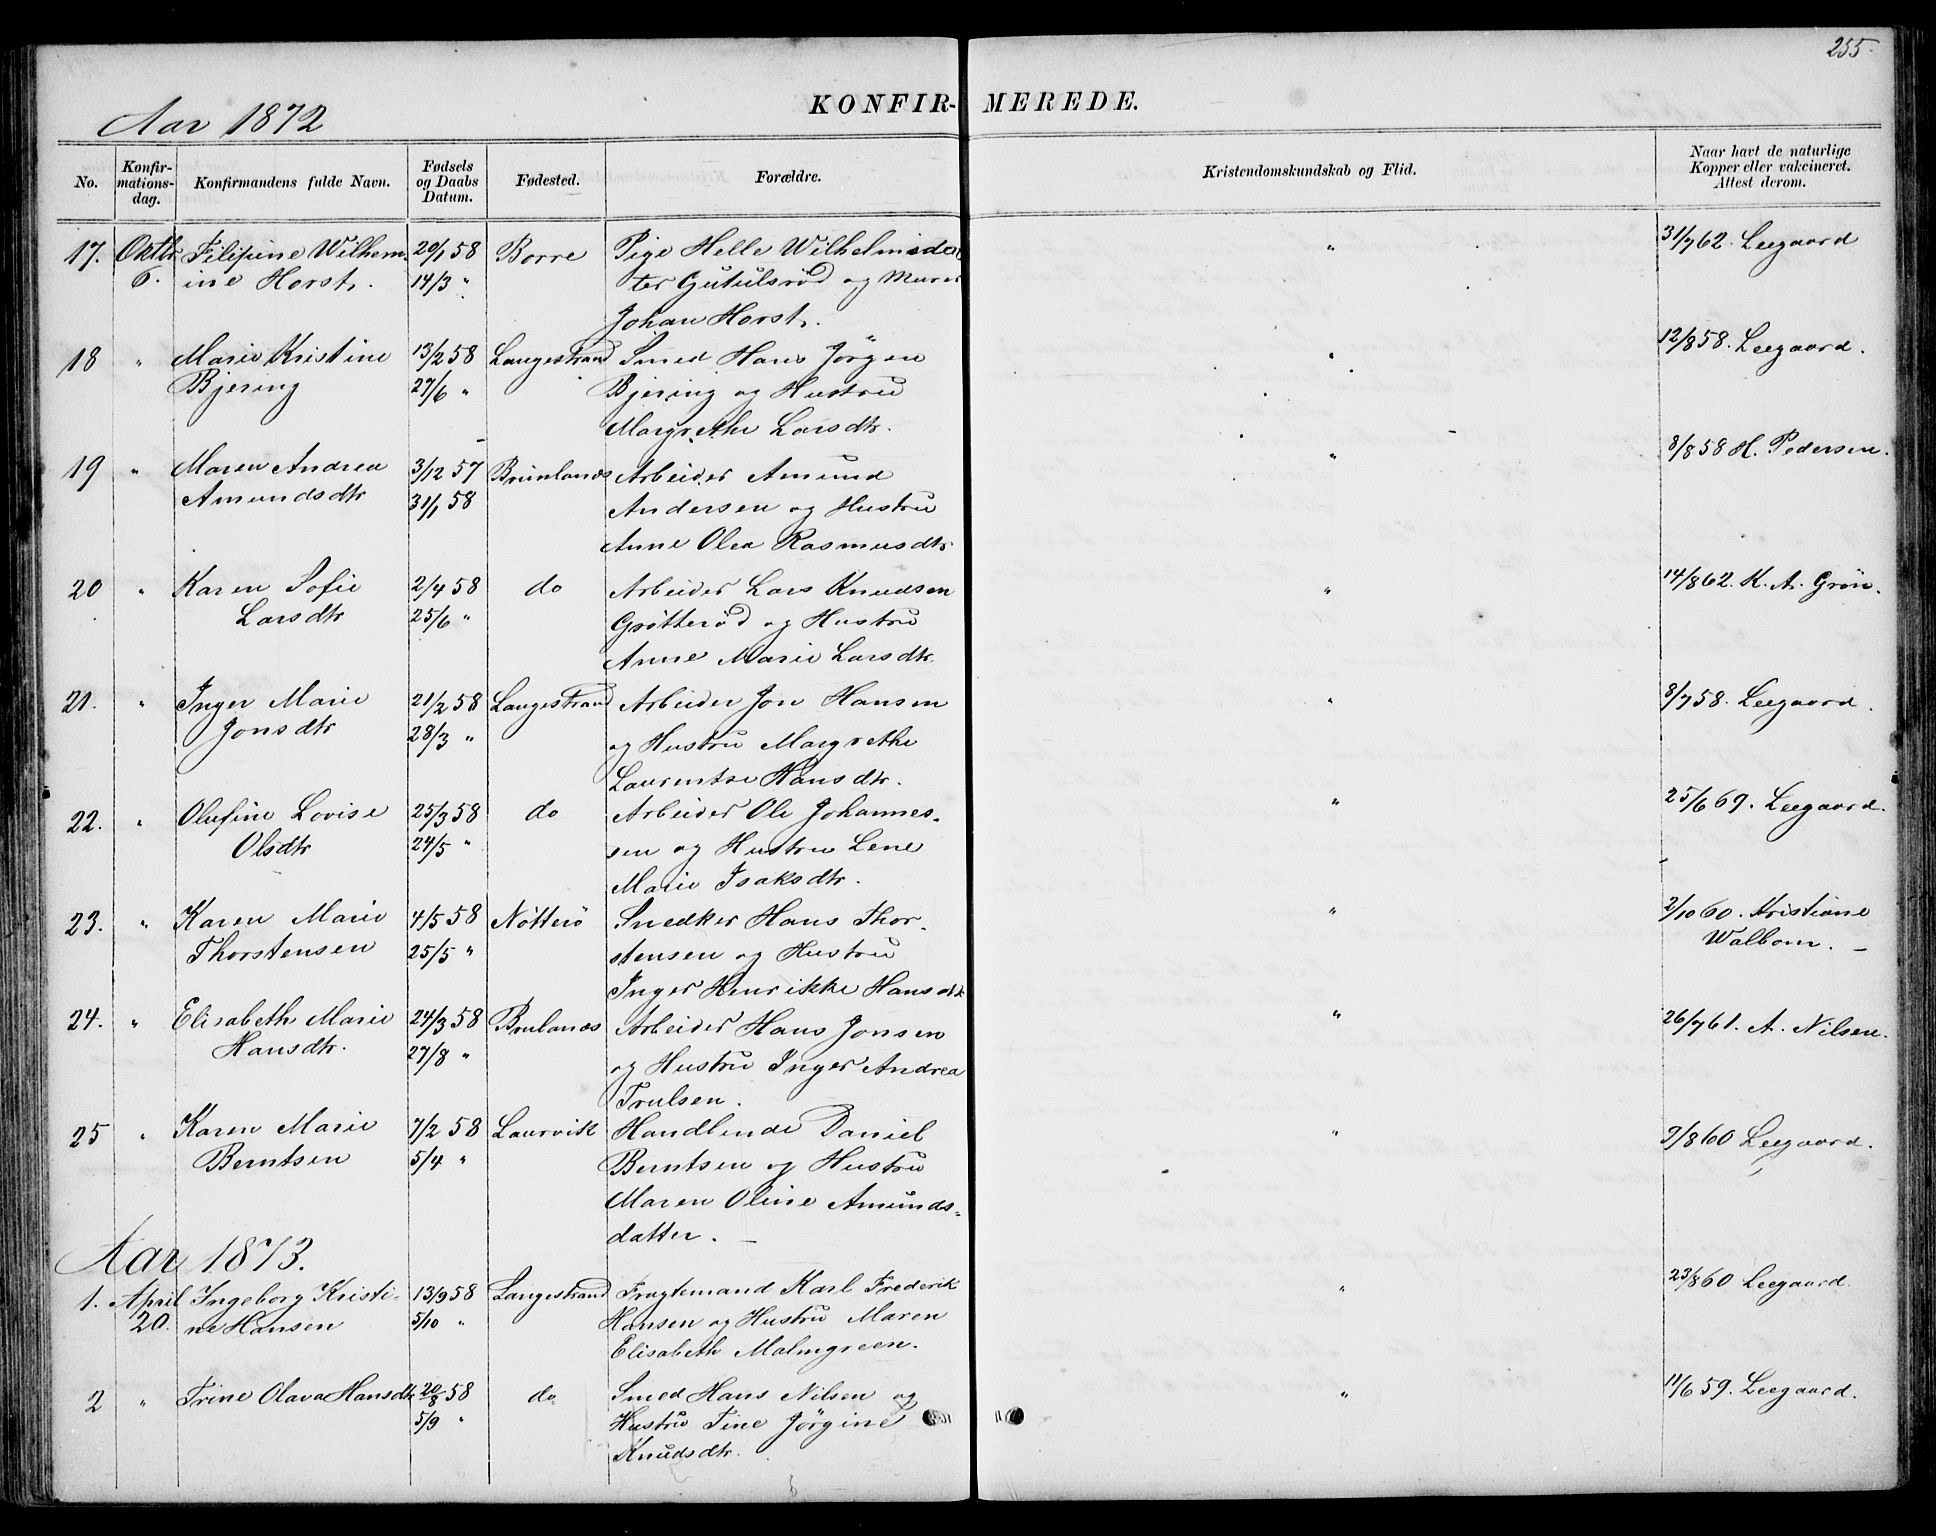 255.
Aar 1872
KONFIR- MEREDE.
No.
Konfir-
mations-
dag.
Konfirmandens fulde Navn.
Fødsels
og Daabs
Datum.
Fødested.
Forældre.
Kristendomskundskab og Flid.
Naar havt de naturlige
Kopper eller vakcineret.
Attest derom.
17. Oktbr Filipine Wilhem 20/1 58 Borre Pige Helle Wilhelmsdat " 31/7 62. Leegaard
6. ine Horst. 14/3 " ter Gutulsröd og Murer
Johan Horst.
18 " Marie Kristine 13/2 58 Langestrand Smed Hans Jörgen " 12/8 58. Leegaard.
Bjering 27/6 " Bjering og Hustru
Margrethe Larsdtr.
19 " Maren Andrea 3/12 57 Brunlanæs Arbeider Amund " 8/8 58 H. Pedersen.
Amundsdtr 31/1 58 Andersen og Hustru
Anne Olea Rasmusdtr
20 " Karen Sofie 2/4 58 do Arbeider Lars Knudsen " 14/8 62. K. A. Grön.
Larsdtr 25/6 " Grötteröd og Hustru
Anne Marie Larsdtr.
21. " Inger Marie 21/2 58 Langestrand Arbeider Jon Hansen " 8/7 58. Leegaard.
Jonsdtr 28/3 " og Hustru Margrethe
Laurentse Hansdtr.
22. " Olufine Lovise 25/3 58 do Arbeider Ole Johannes- " 25/6 69. Leegaard.
Olsdtr 24/5 " sen og Hustru Lene
Marie Isaksdtr.
23. " Karen Marie 4/5 58 Nötterö Snedker Hans Thor- " 2/10 60. Kristiane
Thorstensen 25/5 " stensen og Hustru Walbom. —
Inger Henrikke Hansdt
24. " Elisabeth Marie 24/3 58 Brulanæs Arbeider Hans Jonsen " 26/7 61. A. Nilsen.
Hansdtr. 27/8 " og Hustru Inger Andrea
Trulsen.
25 " Karen Marie 7/2 58 Laurvik Handlende Daniel " 9/8 60 Leegaard.
Berntsen 5/4 " Berntsen og Hustru
Maren Oline Amunds-
datter. —
Aar 1873.
1. April Ingeborg Kristi- 13/9 58 Langestrand Fragtemand Karl Frederik " 23/8 60 Leegaard.
20. ne Hansen 5/10 " Hansen og Hustru Maren
Elisabeth Malmgreen.
2 " Trine Olava Hansdtr 20/8 58 do. Smed Hans Nilsen og " 11/6 59. Leegaard.
5/9 " Hustru Tine Jörgine
Knudsdtr.